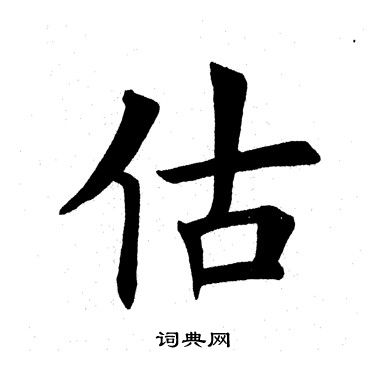 估
词典网